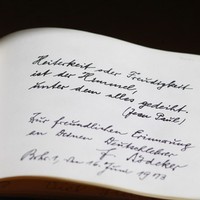 Heiterkeit oder Freudigkeit
ist der Himmel,
unter dem alles gedeiht.
(Jean Paul)
Zur freundlichen Erinnerung
an Deinen Deutschlehrer
F. Rödeker
den 12. Juni 1973